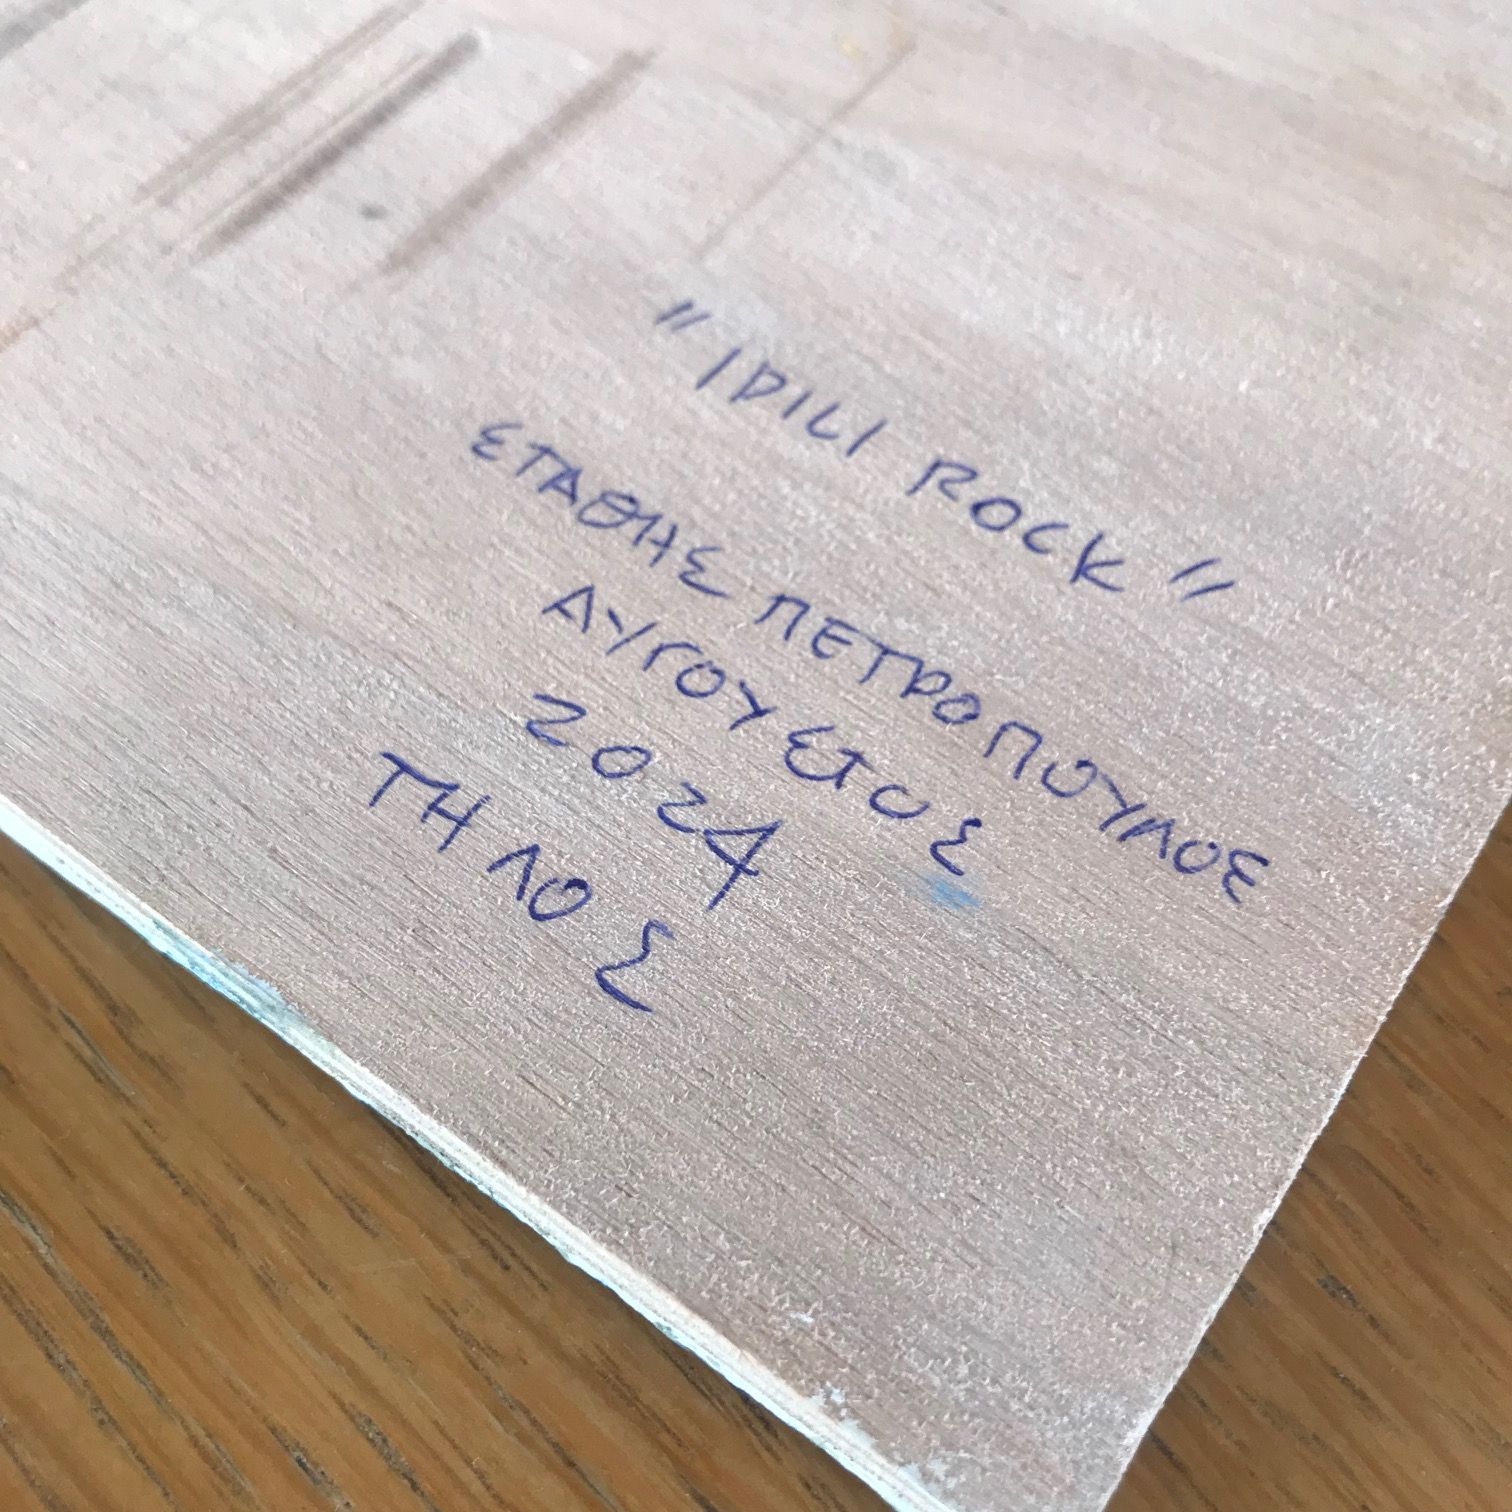 "IDILI ROCK"
ΣΤΑΘΗΣ ΠΕΤΡΟΠΟΥΛΟΣ
ΑΥΓΟΥΣΤΟΣ
2024
ΤΗΛΟΣ